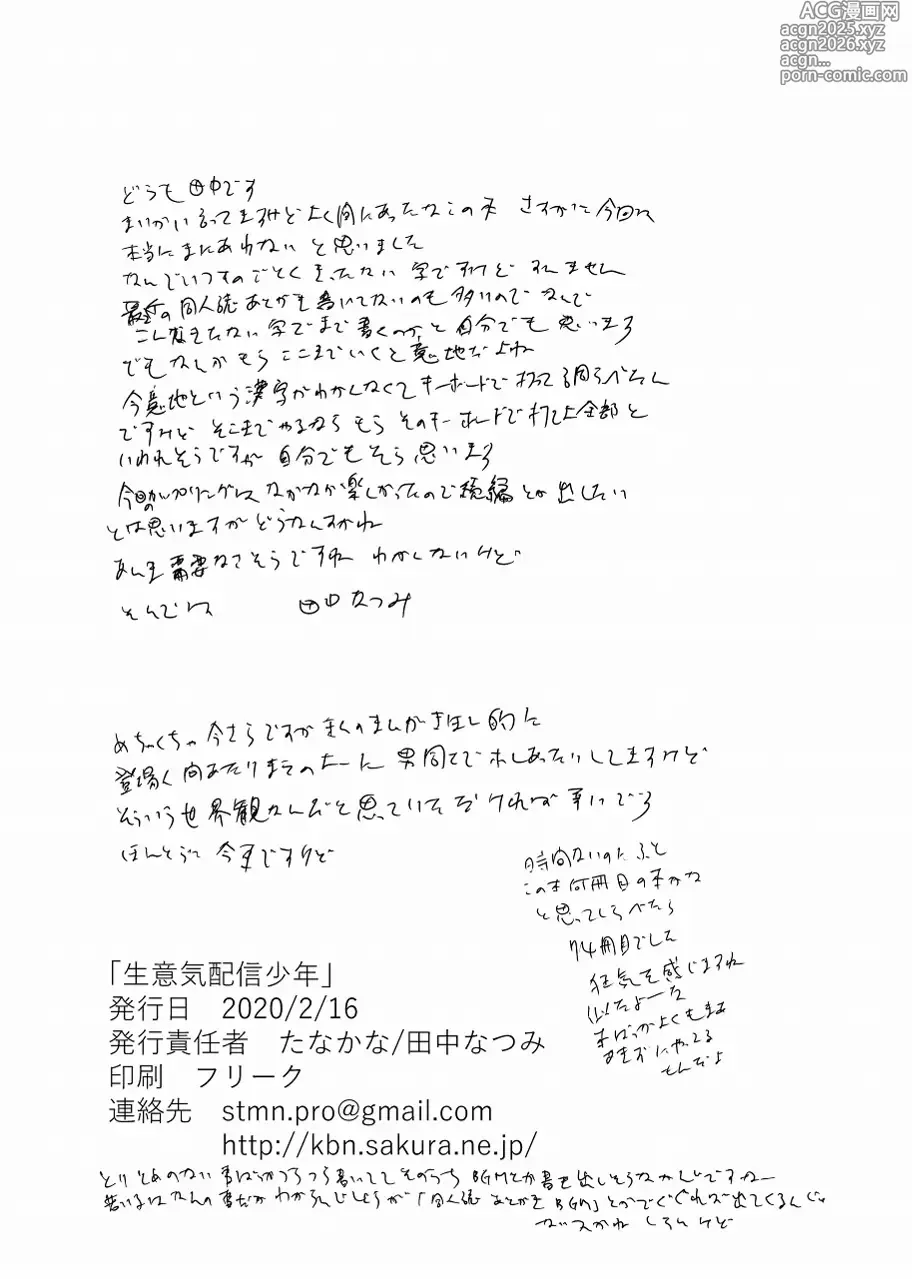 ACG漫画网
acgn2025.xyz
acgn2026.xyz
acgn...
porn-comic.com
どうも田中です
まいかい言ってますけどよく間にあったなこの本 さすがに今回は
本当にまにあわない と思いました
なんでいつものごとくきったない 字ですけど すいません
最近の同人誌あとがき書いてないのも多いので なんで
こんなきたない字でまで書くのか と自分でも思います
でもなんかもうここまでいくと意地だよね
今意地という漢字がわかんなくてキーボードで打って調べたん
ですけど そこまでやるなら もう そのキーボードで打てよ全部と
いわれそうですが 自分でもそう思います
今回のカップリングは なかなか楽しかったので続編とか出したい
とは思いますが どうなんすかね
あんま需要なさそうですね わかんないけど
そんでは 田中なつみ
めちゃくちゃ今さらですが ぼくのまんが 的に
登場 男同士で しあったりしてますけど
そういう世界観なんだと思っていただければ幸いです
ほんとうに 今更ですけど
時間ないのにふと
この本何冊目の本かな
と思ってしらべたら
74冊目でした
狂気を感じますね
似たよーな
本ばっかよくもまあ
あきずにやってる
もんだよ
「生意気配信少年」
発行日 2020/2/16
発行責任者 たなかな/田中なつみ
印刷 フリーク
連絡先 stmn.pro@gmail.com
http://kbn.sakura.ne.jp/
とりとめのない事ばかりつらつら書いててそのうちBGMとか書き出しそうなかんじですねー
若い子はなんの事だかわからんでしょうが「同人誌 あとがき BGM」とかでぐぐれば出てくるんじゃ
ないっすかね しらんけど